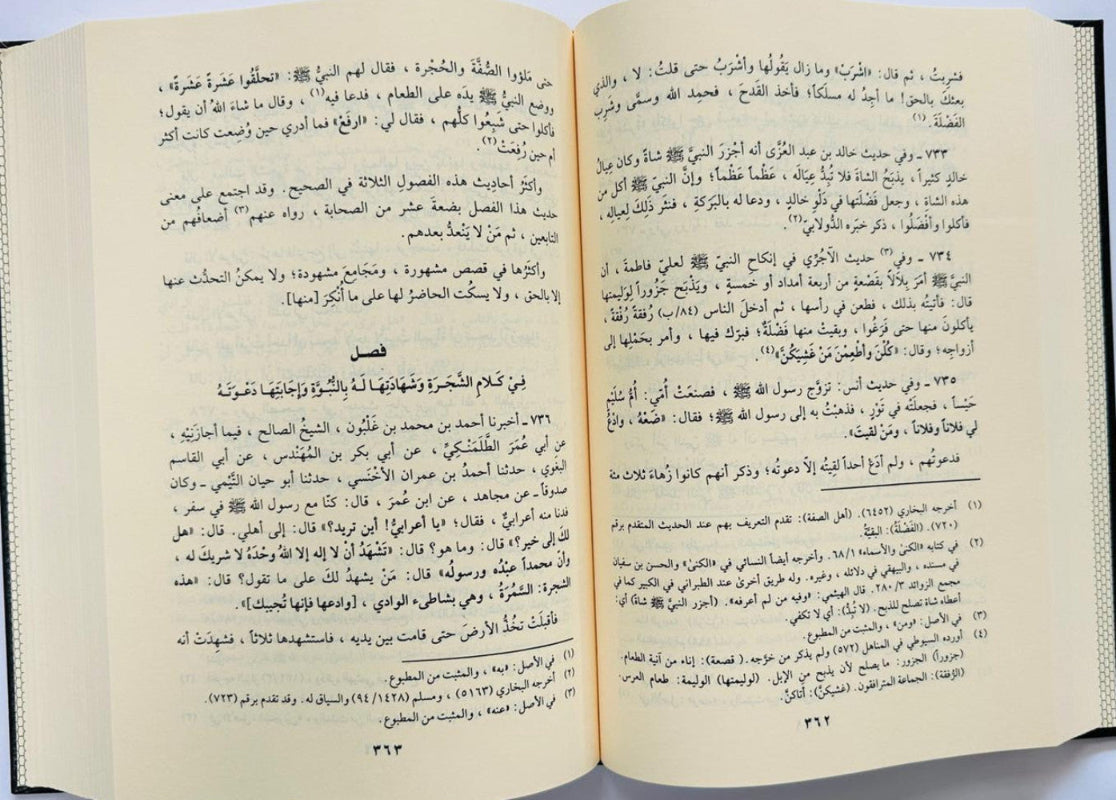 فشربتُ ، ثم قال: «اشْرَبْ» وما زال يَقُولُها وأشْرَبُ حتى قلتُ: لا ، والذي
بعثكَ بالحق! ما أجِدُ له مسلَكاً؛ فأخذ القَدحَ ، فحمِد الله وسمَّى وشَرِب
الفَضْلَةَ. (١)
٧٣٣ ـ وفي حديث خالد بن عبد العُزَّى أنه أجْزَرَ النبيَّ ﷺ شاةً وكان عِيالُ
خالدٍ كثيراً ، يذبَحُ الشاةَ فلا تُبِدُّ عِيَالَه ، عَظْماً عَظْماً؛ وإنَّ النبيَّ ﷺ أكل من
هذه الشاةِ ، وجعل فَضْلَتَها في دَلْوِ خالدٍ ، ودعا له بالبَرَكةِ ، فنَثَر ذَلِكَ لِعيالِه ،
فأكلوا وأفْضَلُوا ، ذكر خبَره الدُّولابيّ(٢).
٧٣٤ ـ وفي(٣) حديث الآجُرِّي في إنكاحِ النبيّ ﷺ لعليّ فاطمةَ ، أن
النبيَّ ﷺ أمَرَ بِلَالاً بقَصْعةٍ من أربعة أمداد أو خمسةٍ ، ويَذْبَح جَزُوراً لِوَلِيمتها
قال: فأتيتُه بذلك ، فطعن في رأسها ، ثم أدخلَ الناس (٨٤/ب) رُفْقةً رُفْقةً ،
يأكلونَ منها حتى فَرَغُوا ، وبقيتْ منها فَضْلَةٌ؛ فبرّك فيها ، وأمر بحَمْلِها إلى
أزواجِه؛ وقال: «كُلْنَ وأطْعِمْنَ مَنْ غَشِيَكُنَّ»(٤).
٧٣٥ ـ وفي حديث أنس: تزوَّج رسول الله ﷺ ، فصنعَتْ أُمّي: أمُّ سُلَيْمٍ
حَيْساً ، فجعلَتْه في تَوْرٍ ، فذهبْتُ به إلى رسول الله ﷺ؛ فقال: «ضَعْهُ ، وادْعُ
لي فلاناً وفلاناً ، ومَنْ لقيتَ».
فدعوتُهم ، ولم أدَعْ أحداً لقِيتُه إلاّ دعوتُه؛ وذكر أنهم كانوا زُهاءَ ثلاث مئة
(١) أخرجه البخاري (٦٤٥٢). (أهل الصفة): تقدم التعريف بهم عند الحديث المتقدم برقم
(٧٢٠). (الفَضْلَةُ): البقيَّةُ.
(٢) في كتابه «الكنى والأسماء» ١/ ٦٨. وأخرجه أيضاً النسائي في «الكنىٰ» والحسن بن سفيان
في مسنده ، والبيهقي في دلائله ، وغيره. وله طريق أخرىٰ عند الطبراني في الكبير كما في
مجمع الزوائد ٣/ ٢٨٠. قال الهيثمي: «وفيه من لم أعرفه». (أجزر النبيَّ ﷺ شاة) أي:
أعطاه شاة تصلح للذبح. (لا تُبِدُّ): أي لا تكفي.
(٣) في الأصل: «ومن» ، والمثبت من المطبوع.
(٤) أورده السيوطي في المناهل (٥٧٢) ولم يذكر من خرَّجه. ( قصعة): إناء من آنية الطعام.
(جزوراً) الجزور: ما يصلح لأن يذبح من الإبل. (لوليمتها) الوليمة: طعام العرس.
(الرُّفقة): الجماعة المترافقون. (غشيكنَّ): أتاكنَّ.
٣٦٢
حتى مَلؤوا الصُّفَّةَ والحُجْرة ، فقال لهم النبيُّ ﷺ: «تحلَّقُوا عَشَرةً عَشَرةً» ،
ووضع النبيُّ ﷺ يدَه على الطعام ، فدعا فيه(١) ، وقال ما شاءَ اللهُ أن يقول؛
فأكلوا حتى شَبِعُوا كلُّهم ، فقال لي: «ارفَعْ» فما أدري حين وُضِعت كانت أكثر
أم حين رُفِعَتْ(٢).
وأكثَرُ أحادِيث هذه الفصولِ الثلاثة في الصحيح. وقد اجتمع على معنى
حديث هذا الفصل بضعةَ عشر من الصحابة ، رواه عنهم(٣) أضعافُهم من
التابعين ، ثم مَنْ لا يَنْعدُّ بعدهم.
وأكثرُها في قصص مشهورة ، ومَجَامِعَ مشهودة؛ ولا يمكنُ التحدُّث عنها
إلا بالحق ، ولا يسكُت الحاضرُ لها على ما أُنْكِرَ [منها].
فصل
فِيْ كَلَامِ الشَّجَرَةِ وَشَهَادَتِهَا لَهُ بِالنُّبُوَّةِ وَإجَابَتِهَا دَعْوَتَهُ
٧٣٦ ـ أخبرنا أحمد بن محمد بن غَلْبُون ، الشيخُ الصالح ، فيما أجازَنِيْهِ ،
عن أبي عُمَرَ الطَّلَمَنْكِيِّ ، عن أبي بكر بن المُهَنْدس ، عن أبي القاسم
البغَوِي ، حدثنا أحمدُ بن عمران الأخْنَسي ، حدثنا أبو حيان التَّيْمي ـ وكان
صدوقاً ـ عن مجاهد ، عن ابن عُمرَ ، قال: كنّا مع رسول الله ﷺ في سفر ،
فدنا منه أعرابيٌّ ، فقال: «يا أعرابيُّ! أين تريد؟» قال: إلى أهلي. قال: «هل
لكَ إلى خير؟» قال: وما هو؟ قال: «تَشْهَدُ أنْ لا إله إلا اللهُ وحْدَهُ لا شريكَ له ،
وأنّ محمداً عبْدُه ورسولُه» قال: مَنْ يشهدُ لكَ على ما تقول؟ قال: «هذه
الشجرة: السَّمُرَةُ ، وهي بشاطىء الوادي ، [وادعها فإنها تُجيبك]».
فأقبلَتْ تخُدُّ الأرضَ حتى قامت بين يديه ، فاستشهدها ثلاثاً ، فشهِدَتْ أنه
(١) في الأصل: «به» ، والمثبت من المطبوع.
(٢) أخرجه البخاري (٥١٦٣) ، ومسلم (١٤٢٨/ ٩٤) والسياق له. وقد تقدم برقم (٧٢٣).
(٣) في الأصل: «عنه» ، والمثبت من المطبوع.
٣٦٣